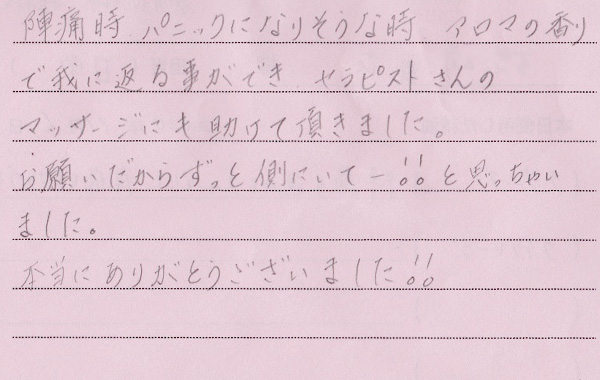 陣痛時、パニックになりそうな時、アロマの香り
で我に返る事ができ、セラピストさんの
マッサージにも助けて頂きました。
お願いだからずっと側にいてー!!と思っちゃい
ました。
本当にありがとうございました!!